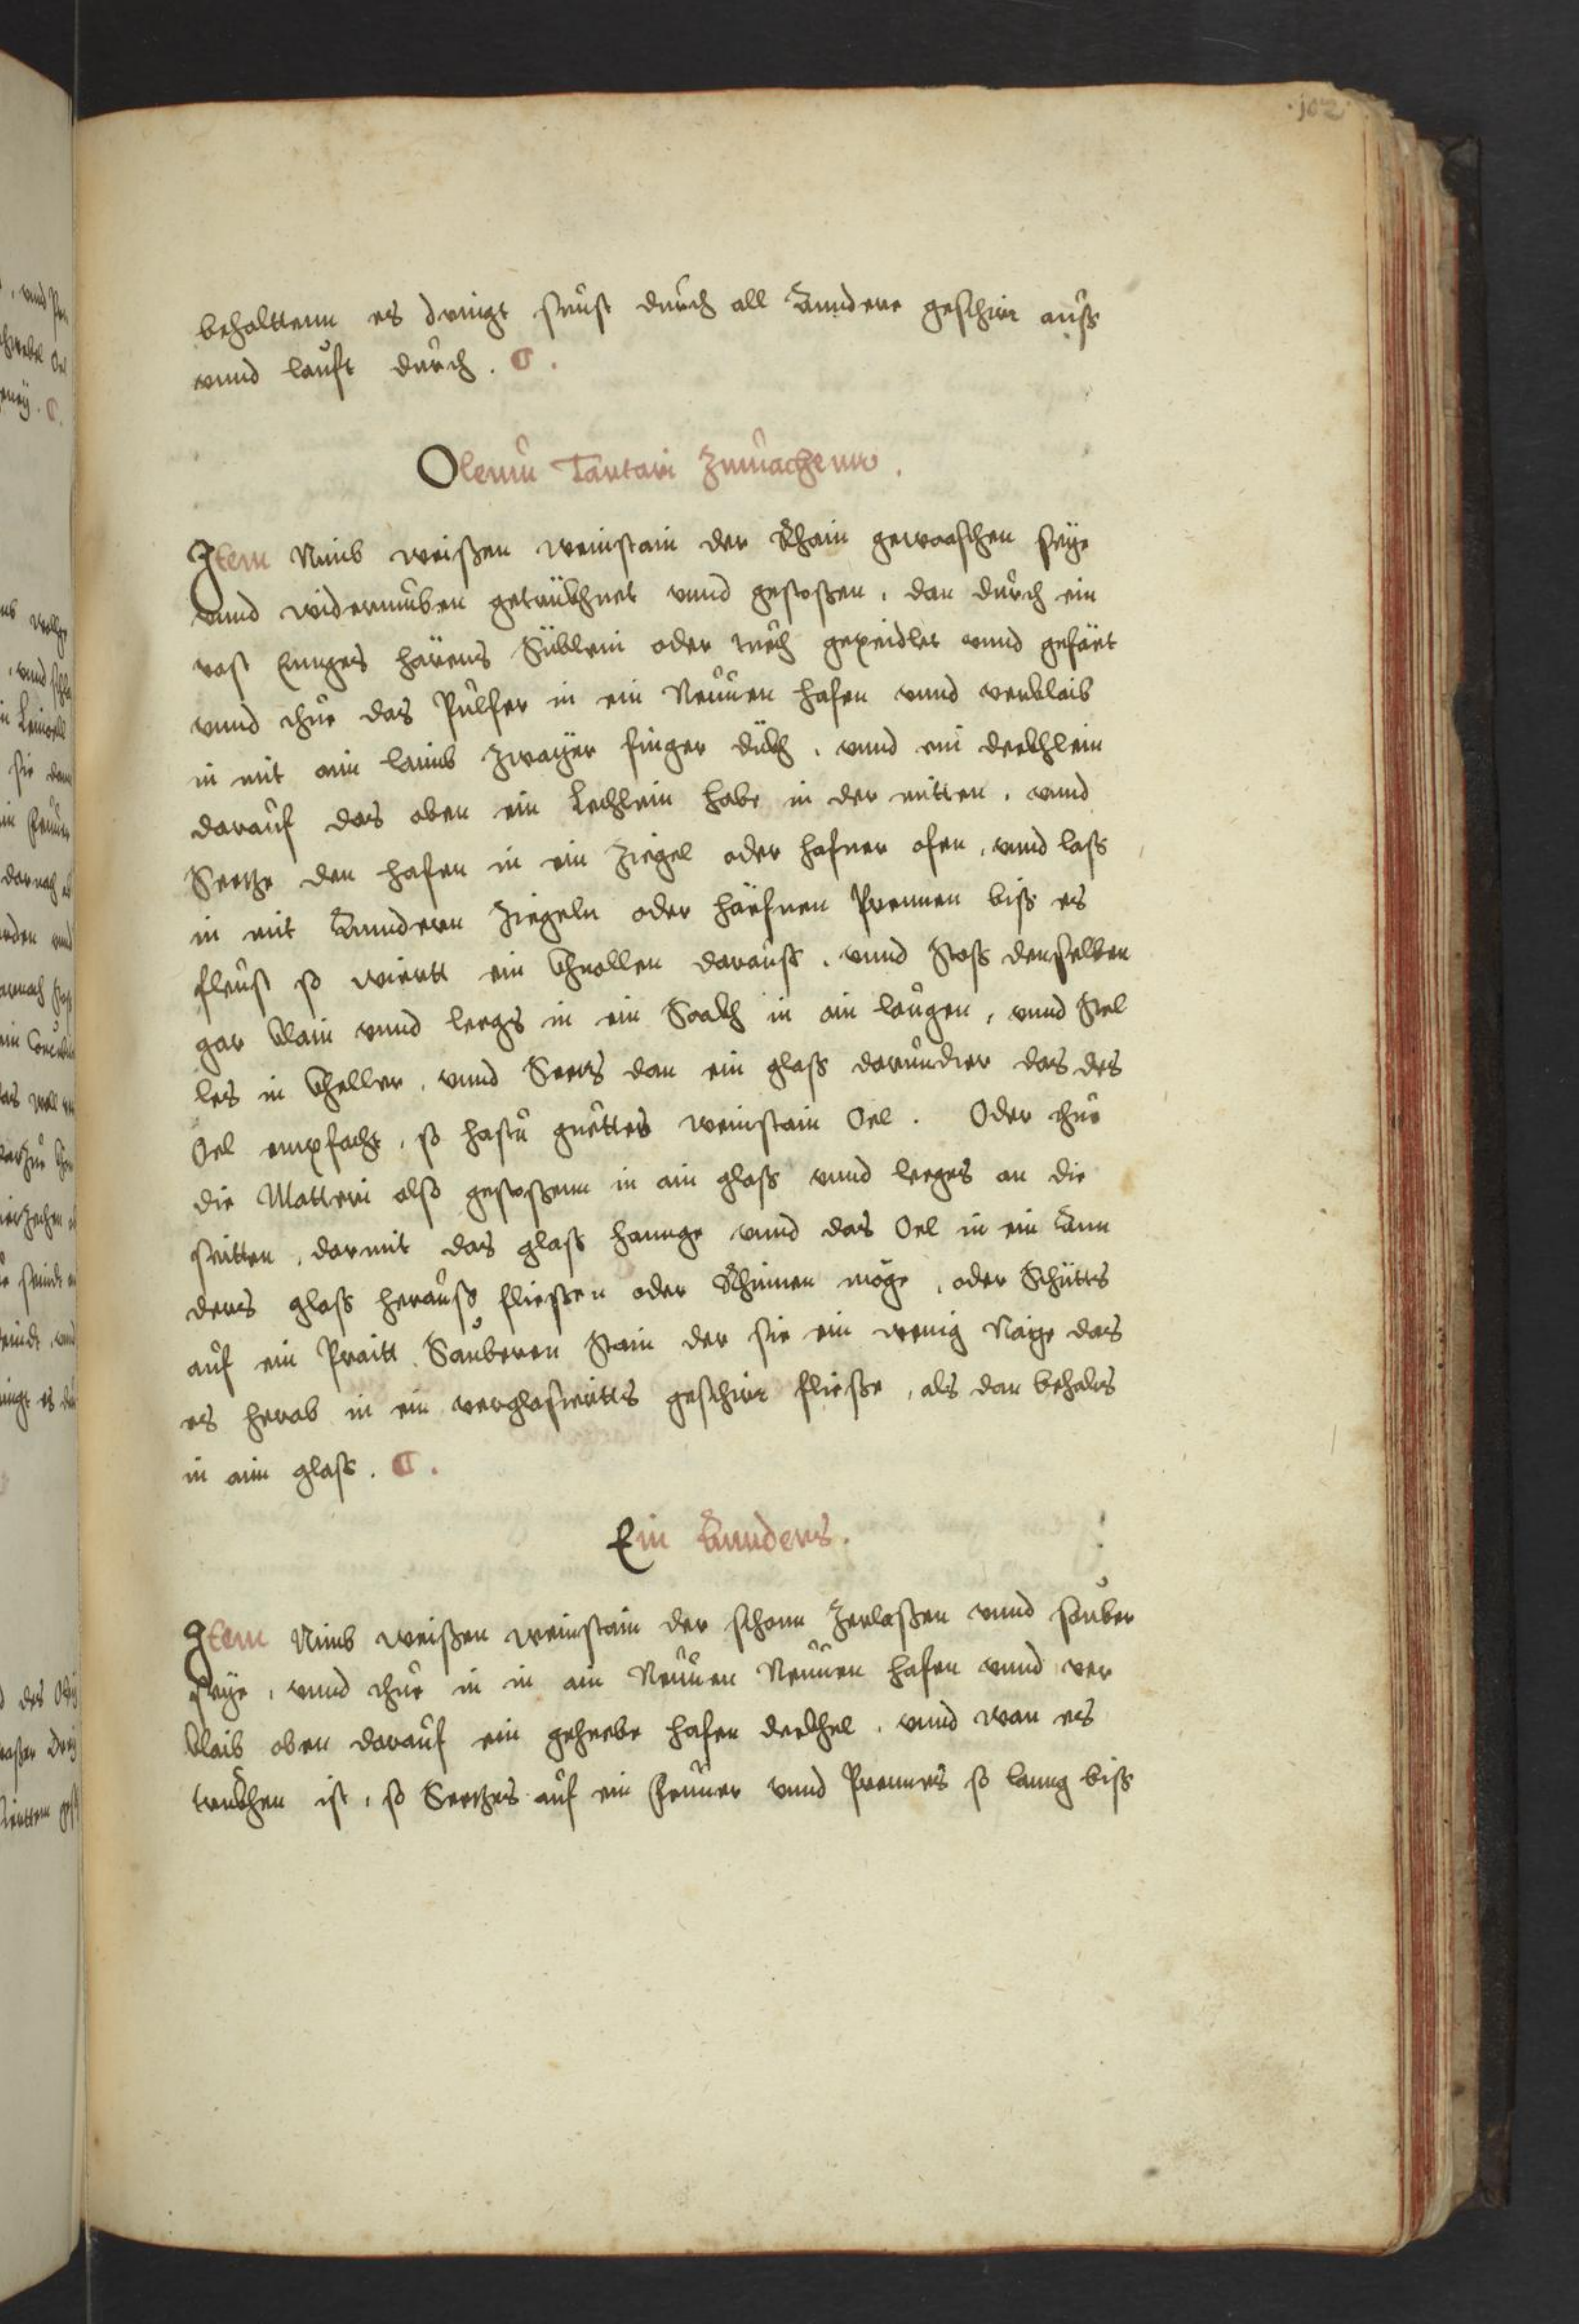 102
behalttenn es dringt sunst durch all Annder geschirr auß
vnnd lauft durch.
Oleum Tartari Zumachenn.
Item Nimb weißen weinstain der Rhain gewaschen seye
vnnd widerumben getrückhnet vnnd gestoßen, dan durch ein
vast Ennges härens Süblein oder tuech gepeidlet vnnd gefäet
vnnd thue das Pulfer in ein Neuuen hafen vnnd verklaib
in mit aim laimb zwayer finger dickh, vnnd ein deckhlein
darauf das oben ein Lechlein habe in der mitten, vnnd
Seetze den hafen in ein Ziegel oder hafner ofen, vnnd laß
in mit Annderen Ziegeln oder häefnen Prennen biß es
fleust so wiertt ein khnollen darauß, vnnd stoß denselben
gar klain vnnd leegs in ein Sackh in ain laugen, vnnd stel
les in kheller, vnnd Seetz dan ein glaß darundter das des
Oel empfacht, so hastu guettes weinstain Oel. Oder thue
die Matteri also gestoßenn in ain glaß vnnd leeges an die
seitten, darmit das glaß hannge vnnd das Oel in ein Ann
ders glaß herauß fließen oder Rhinnen möge, oder Schütts
auf ein Praitt Sauberen Stain der sie ein wenig Naige das
es herab in ein verglasiertts geschirr fließe, als dan behalts
in aim glaß.
Ein Annders.
Item Nimb weißen weinstain der schonn Zerlaßen vnnd sauber
seye, vnnd thue in in ain Neuuen Neuuen hafen vnnd ver
klaib oben darauf ein geheebe hafen deckhel, vnnd wan es
truckhen ist, so Seetzes auf ein Feuuer vnnd Prennes so lanng biß